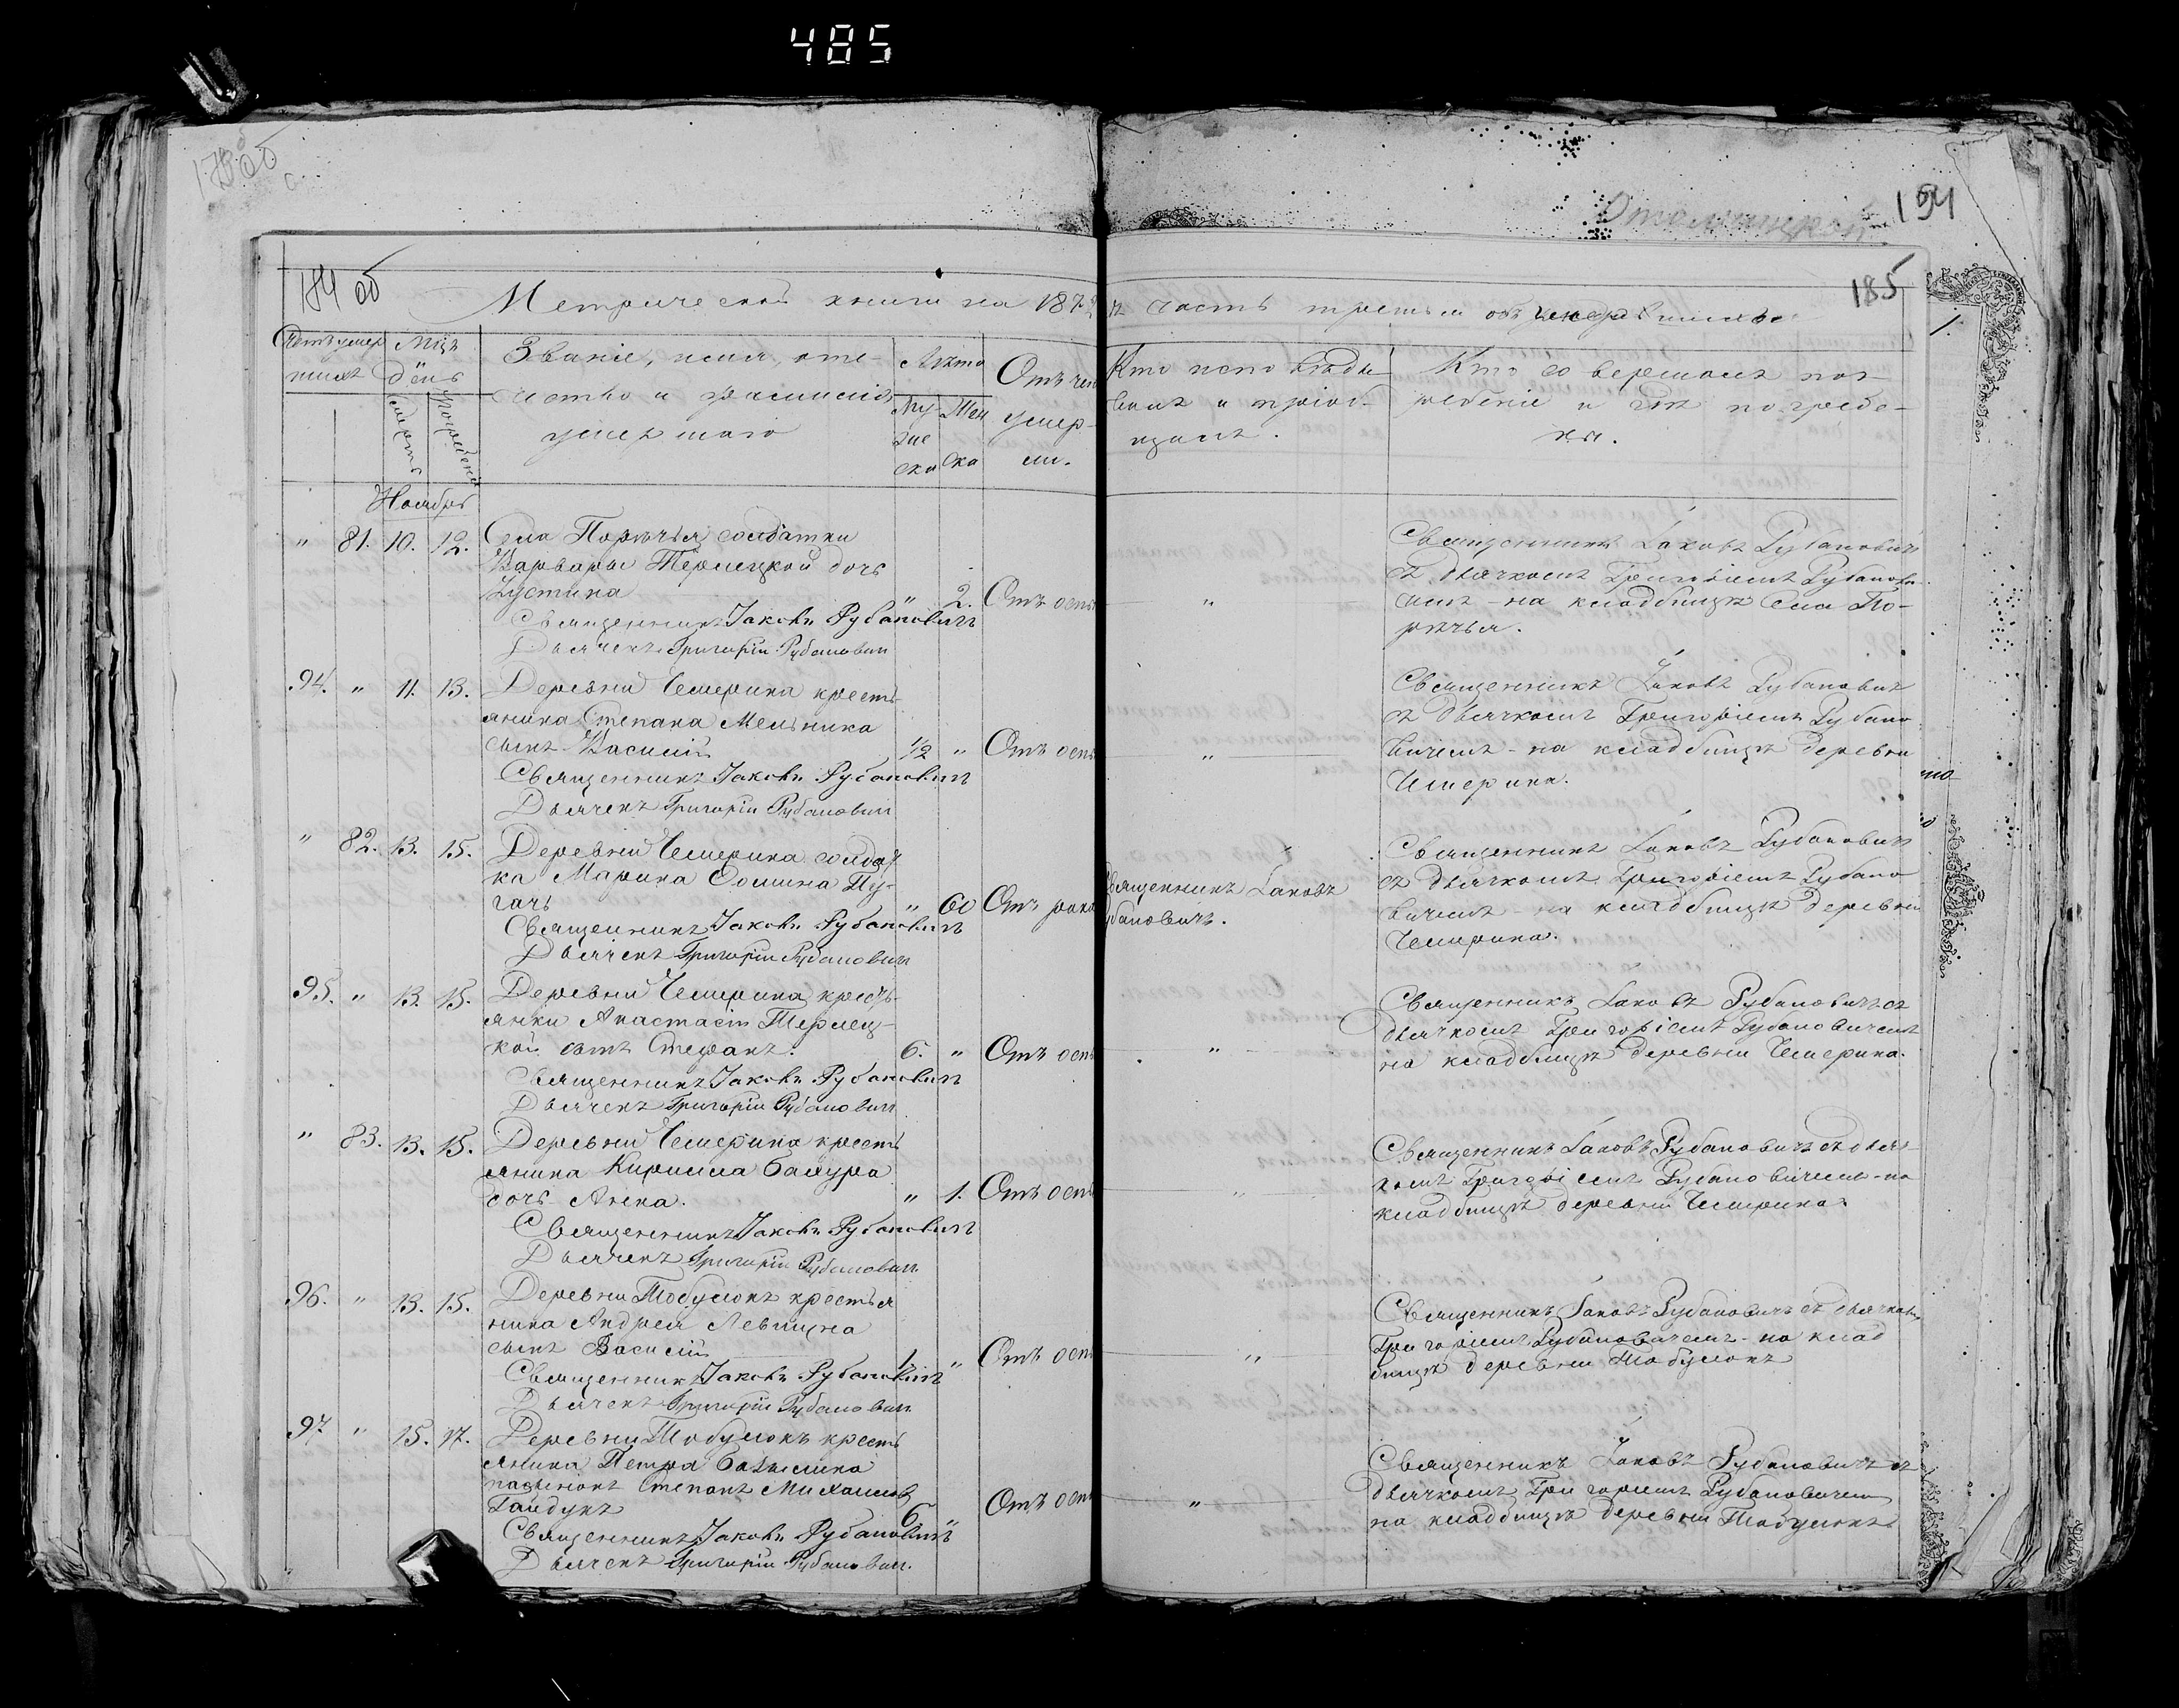 485
194
184 об
185
Метрической книги на 187
часть третья объ умершихъ
Звание, имя, оте-
чество и фамилія
умершаго
Мѣць
день
Лѣта
Му
жe
ска
Жен
ска
Отъ чего
умер-
ли.
Кто испо вѣды
валъ и пріоб-
щалъ.
Кто со вершалъ пог-
ребеніе и гдѣ погребе-
ны.
Ноябрь
" 81. 10. 12. Села Порѣчья солдатки
Варвары Терлецкой дочь
Іустина " 2. Отъ осп
Священникъ Іаковъ Рубановичъ
Дьячекъ Григорій Рубанович
Священникъ Іаковъ Рубановичъ
съ дьячкомъ Григоріемъ Рубанови-
чемъ - на кладбищѣ Села По-
рѣчья.
94. " 11. 13. Деревни Чемерина кресть-
янина Степана Мельника
сынъ Василій 1/2 " Отъ осп
Священникъ Іаковъ Рубановичъ
Дьячекъ Григорій Рубанович
Священникъ Іаковъ Рубановичъ
съ дьячкомъ Григоріемъ Рубано
вичемъ - на кладбищѣ деревни
Чемерина.
" 82. 13. 15. Деревни Чемерина солдат
ка Марина Фомина Пу-
гачь " 60 Отъ рака
Священникъ Іаковъ Рубановичъ
Дьячекъ Григорій Рубанович
вященникъ Іаковъ
бановичъ.
Священникъ Іаковъ Рубановичъ
съ дьячкомъ Григоріемъ Рубано
вичемъ - на кладбищѣ деревни
Чемерина.
95. " 13. 15. Деревни Чемерина кресть-
янки Анастасіи Терлец-
кой сынъ Стефанъ. 6. " Отъ осп
Священникъ Іаковъ Рубановичъ
Дьячекъ Григорій Рубанович
Священникъ Іаковъ Рубановичъ съ
дьячкомъ Григоріемъ Рубановичемъ
на кладбищѣ деревни Чемерина.
" 83. 13. 15. Деревни Чемерина кресть
янина Кирилла
дочь Анна. " 1. Отъ осп
Священникъ Іаковъ Рубановичъ
Дьячекъ Григорій Рубанович
Священникъ Іаковъ Рубановичъ съ дьяч-
комъ Григоріемъ Рубановичемъ - на
кладбищѣ деревни Чемерина.
96. " 13. 15. Деревни Табулокъ крестья
нина Андрея
сынъ Василій " Отъ осп
Священникъ Іаковъ Рубановичъ
Дьячекъ Григорій Рубанович
Священникъ Іаковъ Рубановичъ съ дьячкомъ
Григоріемъ Рубановичемъ - на клад
бищѣ деревни Табулокъ
97. " 15. 17. Деревни Табулокъ кресть
янина Петра
пасынокъ Степанъ Михаиловъ
Гайдукъ 6. " Отъ осп
Священникъ Іаковъ Рубановичъ
Дьячекъ Григорій Рубанович.
Священникъ Іаковъ Рубановичъ съ
дьячкомъ Григоріемъ Рубановичемъ
на кладбищѣ деревни Табулокъ